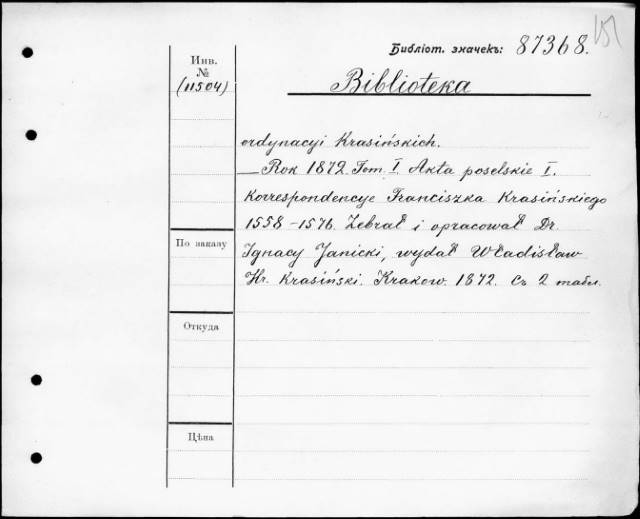 Библіот. значекъ: 87368.
151
Инв.
№
(11504)
Biblioteka
ordynacyi Krasińskich.
— Rok 1872. Tom. I. Akta poselskie I.
Korrespondencye Franciszka Krasińskiego
1558–1576. Zebrał i opracował Dr.
По заказу
Ignacy Janicki, wydał Władisław
Hr. Krasiński. Krakow. 1872. Съ 2 табл.
Откуда
Цѣна